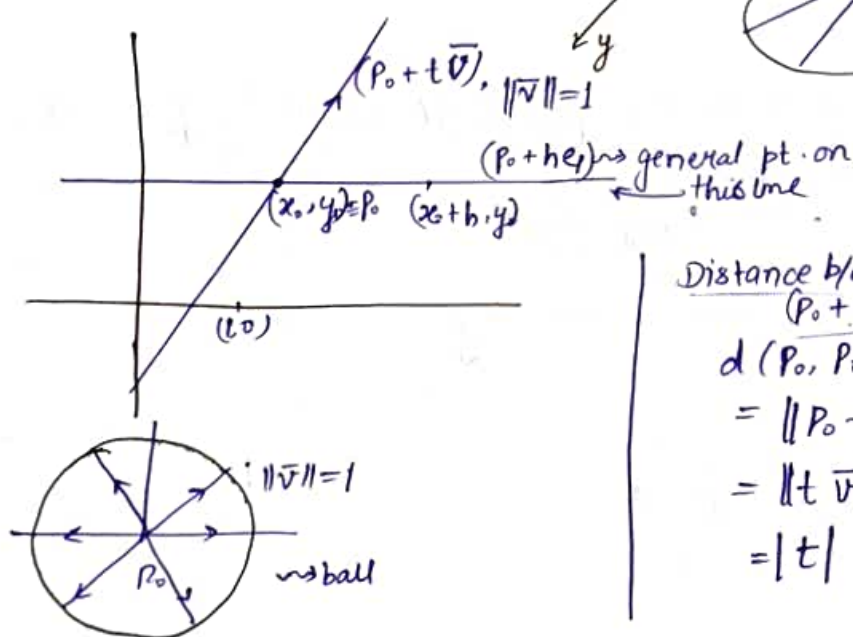 y
(P₀ + t v̄), ||v̄||=1
(P₀ + he₁) ⇝ general pt. on
this line
(x₀, y₀)≡P₀ (x₀+h, y₀)
(1,0)
||v̄||=1
P₀
⇝ ball
Distance b/
(P₀ +
d (P₀, P
= ||P₀ -
= ||t v̄
=|t|